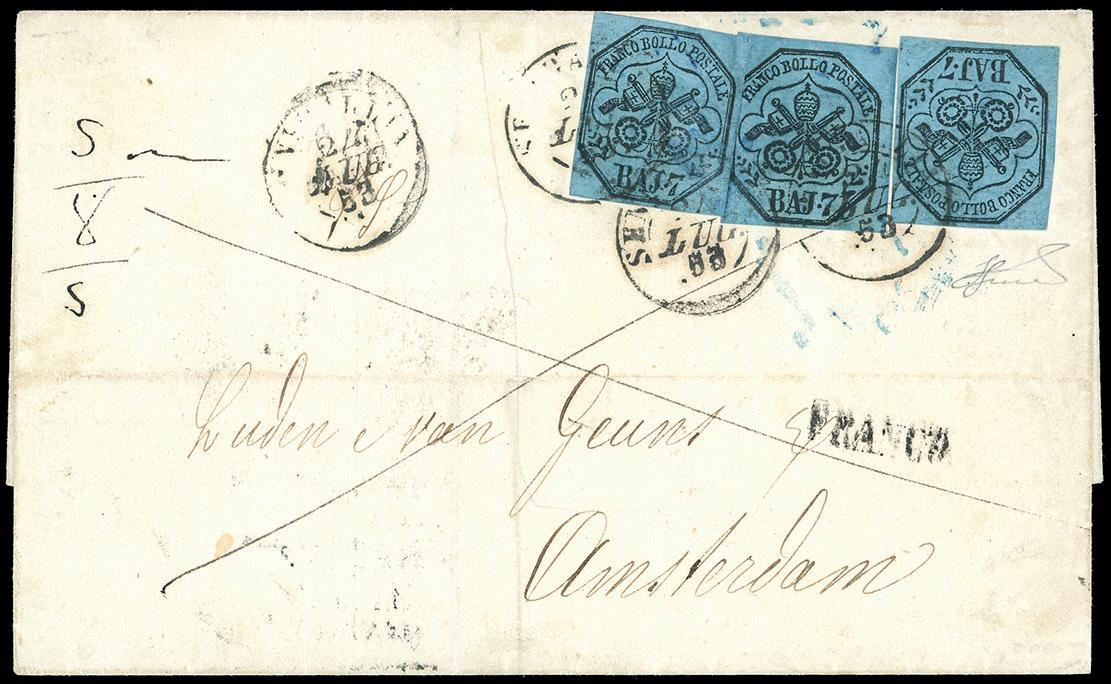 FRANCO BOLLO POSTALE
BAJ·7
FRANCO BOLLO POSTALE
BAJ·7
BAJ·7
FRANCO BOLLO POSTALE
24
LUG.
53
LUG.
53
53
S
8
S
Luden & van Geuns
FRANCO
Amsterdam